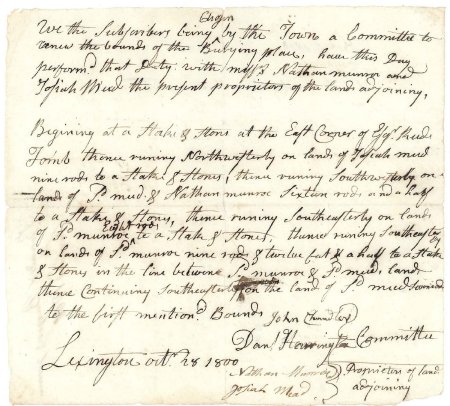 We the Subscribers being by the Town a Committee to
renew the bounds of the Burying place, have this Day
perform'd that Duty with mess.s Nathan munroe and
Josiah Mead the present proprietors of the lands adjoining,
Begining at a Stake & Stons at the East Corner of Esqr. Reeds
Tomb thence runing Northwesterly on lands of Josiah mead
nine rods to a Stake & Stones, thence runing Southwesterly on
lands of Sd. mead & Nathan munroe Sixteen rods and a half
to a Stake & Stones, thence runing Southeasterly on lands
of Sd. munroe Eight rods to a Stake & Stones, thence runing Southeasterly
on lands of Sd. munroe nine rods & twelve feet & a half to a Stake
& Stones in the line betwene Sd. munroe & Sd. meads lands
thence Continuing Southeasterly on the land of Sd. mead
to the first mention'd Bounds
John Chandler
Danl. Harrington Committee
Lexington Octr. 28 1800
Nathan Munroe
Josiah Mead
Proprietors of land
adjoining